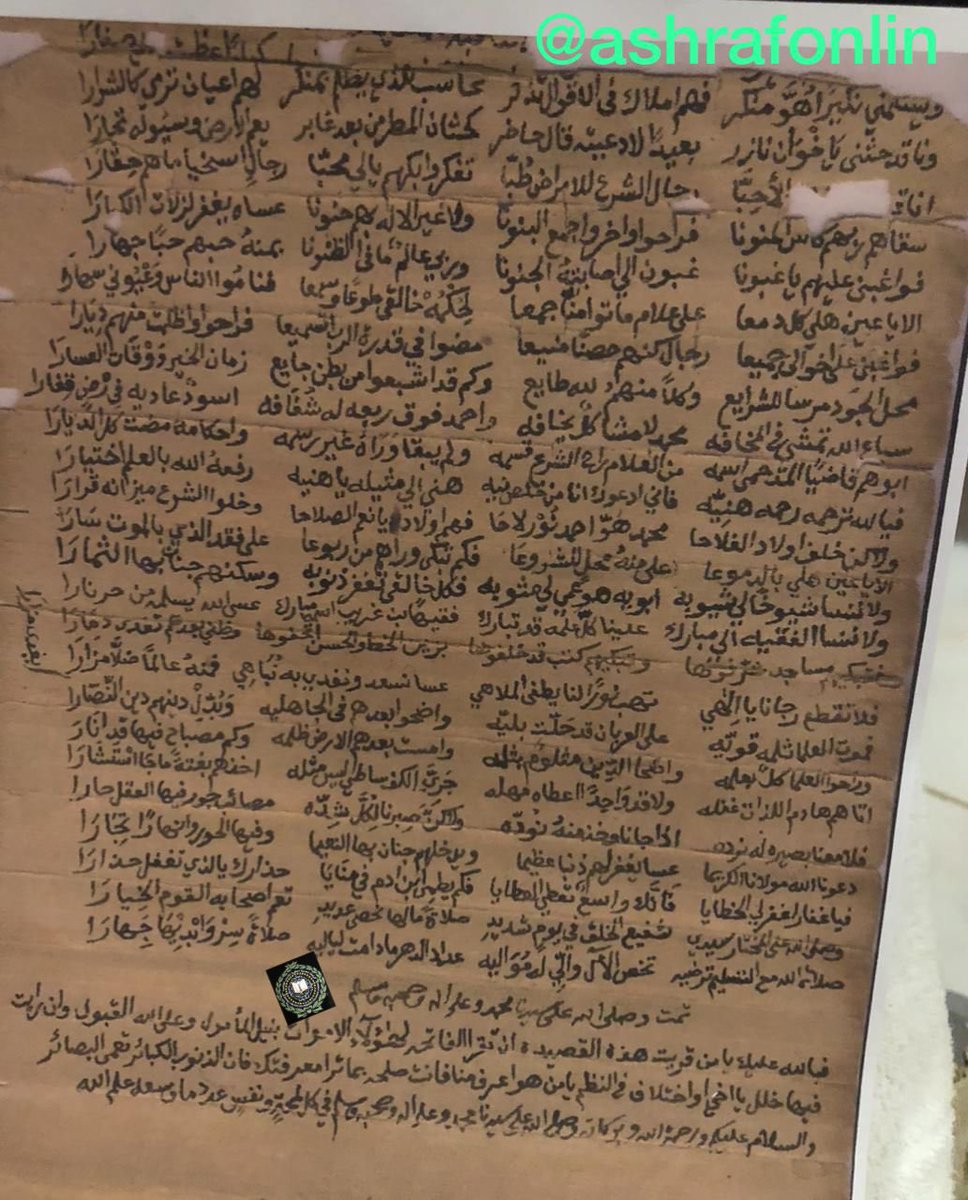 @ashrafonlin
ويسلمني نكيرًا هُوَّ منكر فهم املاك في الاقوال تذكر محاسب للذي يظلم بمنكر لهم اعيان ترمي كالشرارا
وناقد حثنى ياخوَان نازر بعيد الادعيته قال حاضر كمثان المطر من بعد غابر يعم الارض وسيوله تجارا
الأحِبَّا رجال الشرع للامراض طُبّا تفكروا بكم يالي محبّا رجالٍ اسخيا ماهم حقارا
سقاهم ربهم كاس المنونا فراحوا واخر واجمع البنونا ولا غير الاله بهم حنونا عساه يغفر لزلات الكبارا
فواغبني عليهم ياغبونا غبون الي اصابنيه الجنونا وربي عالمٌ ما في الظنونا بمنهُ حبهم حبًا جهارا
الا ياعين هلي كل دمعا على علام ماتوا منّا جمعا لحكمهْ خالقي طوعًا وسمعا فناموا الناس وغبوني سهارا
فواغبني على اخوالي جميعا رجال كنهم حصنًا منيعا مضوا في قدرة الرب السميعا فراحوا واظلمت منهم ديارا
محل الجود مرسا للشرايع وكلاً منهم لله طايع وكم قد اشبعوا من بطن جايع زمان الخير ووقات العسارا
سباع الله تمشي في المخافه محمد لا مشا كلٌ يخافه واحمد فوق ربعه له شفافه اسودٌ عاديه في ارض قفارا
ابوهم قاضيًا المتسمى اسمه من العلام راعي الشرع قسمه ولم يبقا وراه غير رسمه واحكامه مضت كل الديارا
فيا لله ترحمه رحمه هنيّه فاني ادعوك انا من خلص نيه هني الي مثيله ياهنيه رفعهُ الله بالعلم اختيارا
ولاكن خلف اولاد الفلاحا محمد هوّ احمد نُوْرَ لاحا فهم اولاد يانعم الصلاحا وخلوا الشرع ميزانه قرارا
الا ياعين هلي بالدموعا على منهُ محل للشروعا فكم تبكي وراهم من ربوعا على فقد الذي بالموت سارا
ولا ننسا شيوخًا لي شيوبه ابوبه هو وعمي لي مثوبه فكل خالقي تغفر ذنوبه وسكنهم جنانٍ بها الثمارا
ولا ننسا الفقيه الي مبارك علينا كلّ علمه قد تبارك فقيهًا بن غريب اسم مبارك عسى الله يسلمه من حر نارا
وتبكيهم كتب قد خلفوها بزين الخط والحسن
فلا تقطع رجانا يا إلهي تهب نورًا لنا يطفي الملاهي عسا نسعد ونقدي به نباهي فمنهُ عالماً ضلاً مزارا
فموت العلما ثلمه قويّه على العربان قد حَلّت بليّه واضحوا بعدهم في الجاهليه وَبُدِّلْ دينهم دين النّصارا
وراحوا العلما كلٌ بعلمه واظحى الدّين مثلوم بثلمه وامست بعدهم الارض ظلمه وكم مصباح فيها قد انارا
اتاهم هادم اللذات غفله ولا قد واحدًا اعطاه مهله جرت الكون ساطي ليس مثله اخذهم بغتةً ماجا استشارا
فلا معنا بصيره له نرده اذا جانا وخذ منه نودّه ولكنّ صبرنا لِكلّ شدّه مصائب جور فيها العقل حارا
دعونا الله مولانا الكريما عسا يغفر لهم ذنبا عظيما ويدخلهم جنان بها النعيما وفيها الحور وانهارًا تجارا
فيا غفار اغفر لي الخطايا فانّك واسعٌ تعطي العطايا فكم يطمع ابن ادم في منايا حذارك يالذي تغفل حذارا
وصلى الله على المختار سيدي شفيع الخلق في يوم شديدِ صلاةً مالها تحصى عديدِ تعم اصحابه القوم الخيارا
صلاة الله مع التسليم ترضيه تخص الآل والّي له مُوَاليه عداد الدهر ما دامت لياليه صلاةً سِرْ وَابْدِيْهَا جِهَارا
تمت وصلى الله على سيدنا محمد وعلى اله وصحبه وسلم
فبالله عليك يا من قريت هذه القصيده ان تقرا الفاتحه لهؤلاء الاموات بنيل المأمول وعلى الله القبول وان رايت
فيها خلل يا اخي او اختلاف في النظم يا من هو اعرف منا فانت صلحه بماترا معرفتك فان الذنوب الكبائر تعمي البصائر
والسلام عليكم ورحمة الله وبركاته وصلى الله على سيدنا محمد وعلى اله وصحبه وسلم في كل لمحةٍ ونفسٍ عدد ما وسعه علم الله